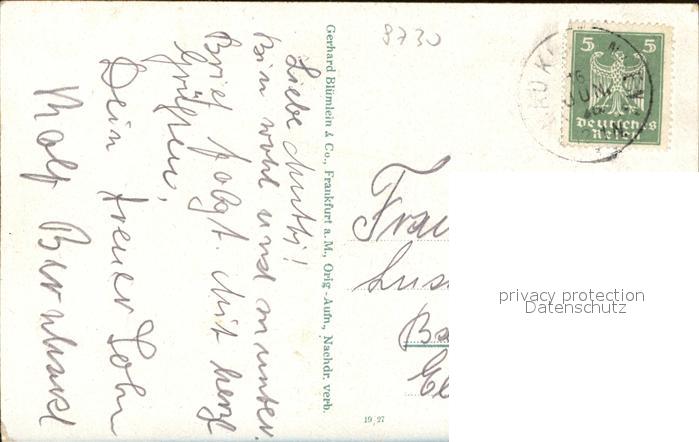 Liebe Mutti!
Bin wohl und munter.
Brief folgt. Mit herzl
Grüßen,
Dein treuer Sohn
Rolf Bernhard
Gerhard Blümlein & Co., Frankfurt a.M., Orig.-Aufn., Nachdr. verb.
19 27
8730
5 5
Deutsches
Reich
16
JUN
Frau
Ba
privacy protection
Datenschutz